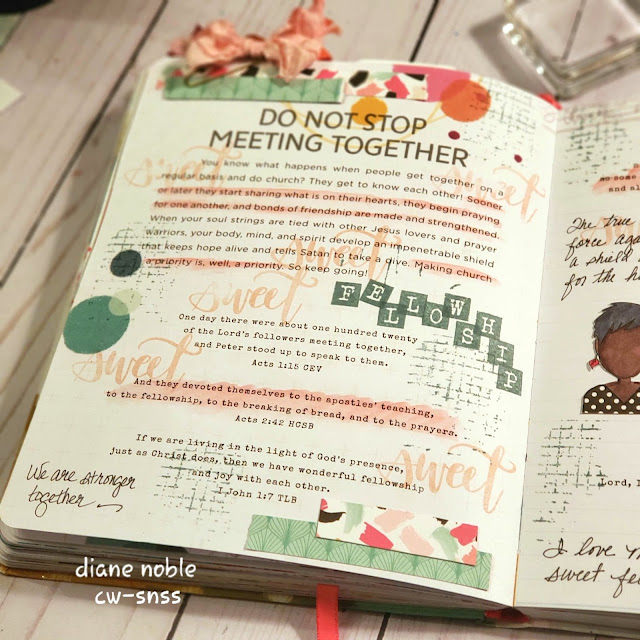 DO NOT STOP
MEETING TOGETHER
You know what happens when people get together on a
regular basis and do church? They get to know each other! Sooner
or later they start sharing what is on their hearts, they begin praying
for one another, and bonds of friendship are made and strengthened.
When your soul strings are tied with other Jesus lovers and prayer
warriors, your body, mind, and spirit develop an impenetrable shield
that keeps hope alive and tells Satan to take a dive. Making church
a priority is, well, a priority. So keep going!
sweet
sweet
sweet
sweet
FELLOWSHIP
One day there were about one hundred twenty
of the Lord's followers meeting together,
and Peter stood up to speak to them.
Acts 1:15 CEV
sweet
And they devoted themselves to the apostles' teaching,
to the fellowship, to the breaking of bread, and to the prayers.
Acts 2:42 HCSB
If we are living in the light of God's presence,
just as Christ does, then we have wonderful fellowship
and joy with each other.
I John 1:7 TLB
sweet
We are stronger
together
diane noble
cw-snss
The true
a shield
for the
Lord, I
I love
sweet